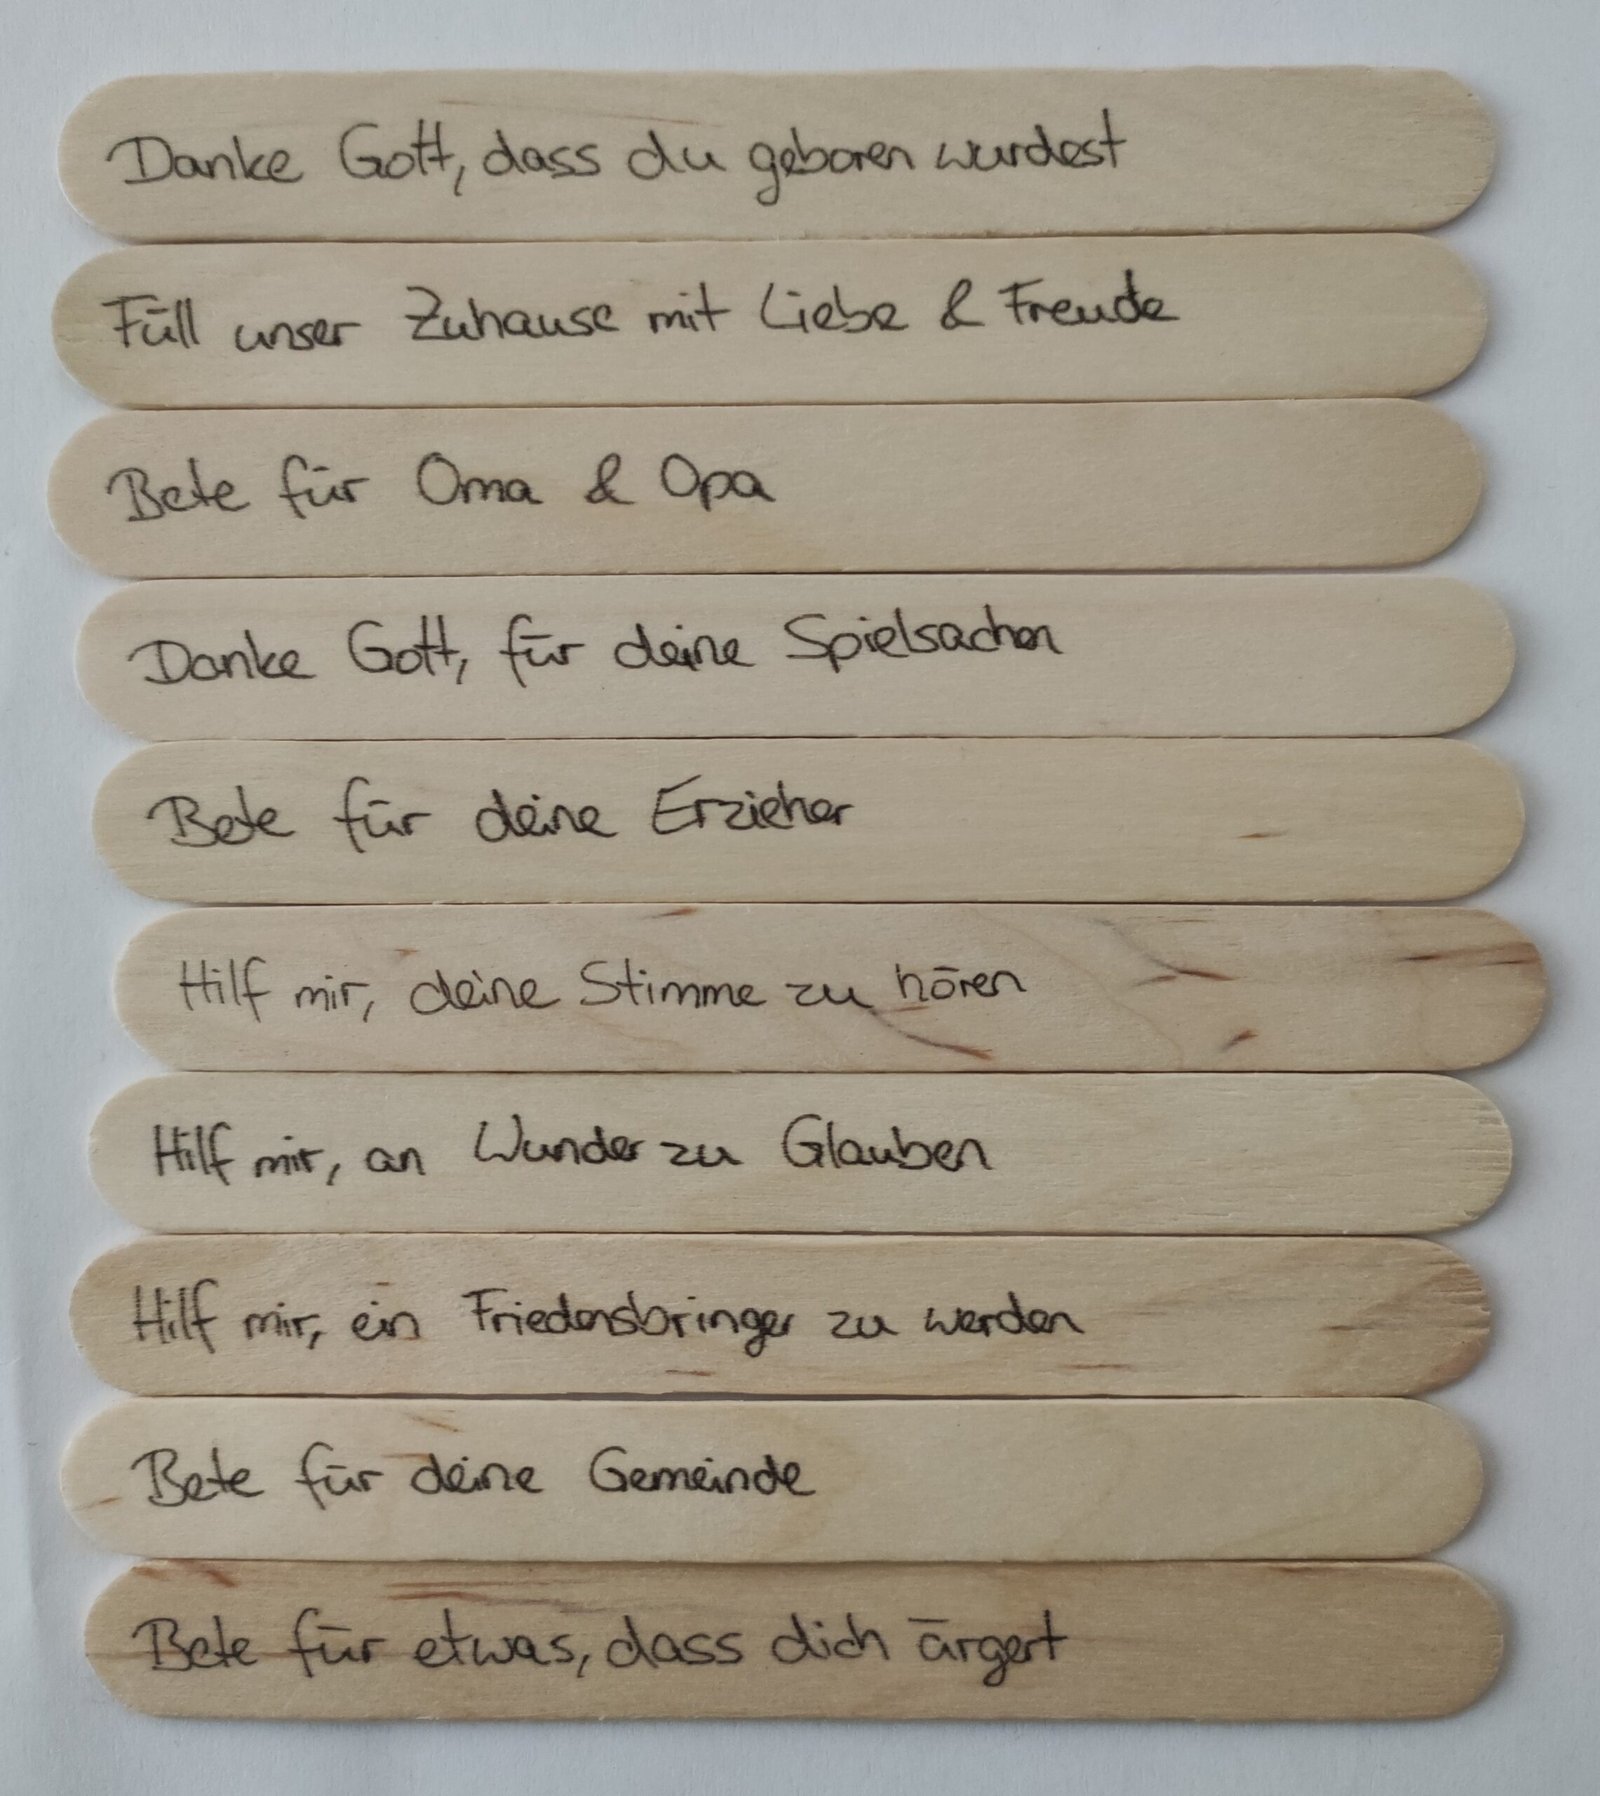 Danke Gott, dass du geboren wurdest
Füll unser Zuhause mit Liebe & Freude
Bete für Oma & Opa
Danke Gott, für deine Spielsachen
Bete für deine Erzieher
Hilf mir, deine Stimme zu hören
Hilf mir, an Wunder zu Glauben
Hilf mir, ein Friedensbringer zu werden
Bete für deine Gemeinde
Bete für etwas, dass dich ärgert